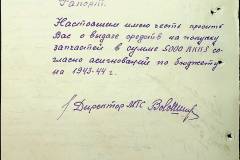 Рапорт.
Настоящим имею честь просить
Вас о выдаче средств на покупку
запчастей в сумме 5000 согласно
ассигнований по бюджету
на 1943-44 г.
Директор МТС